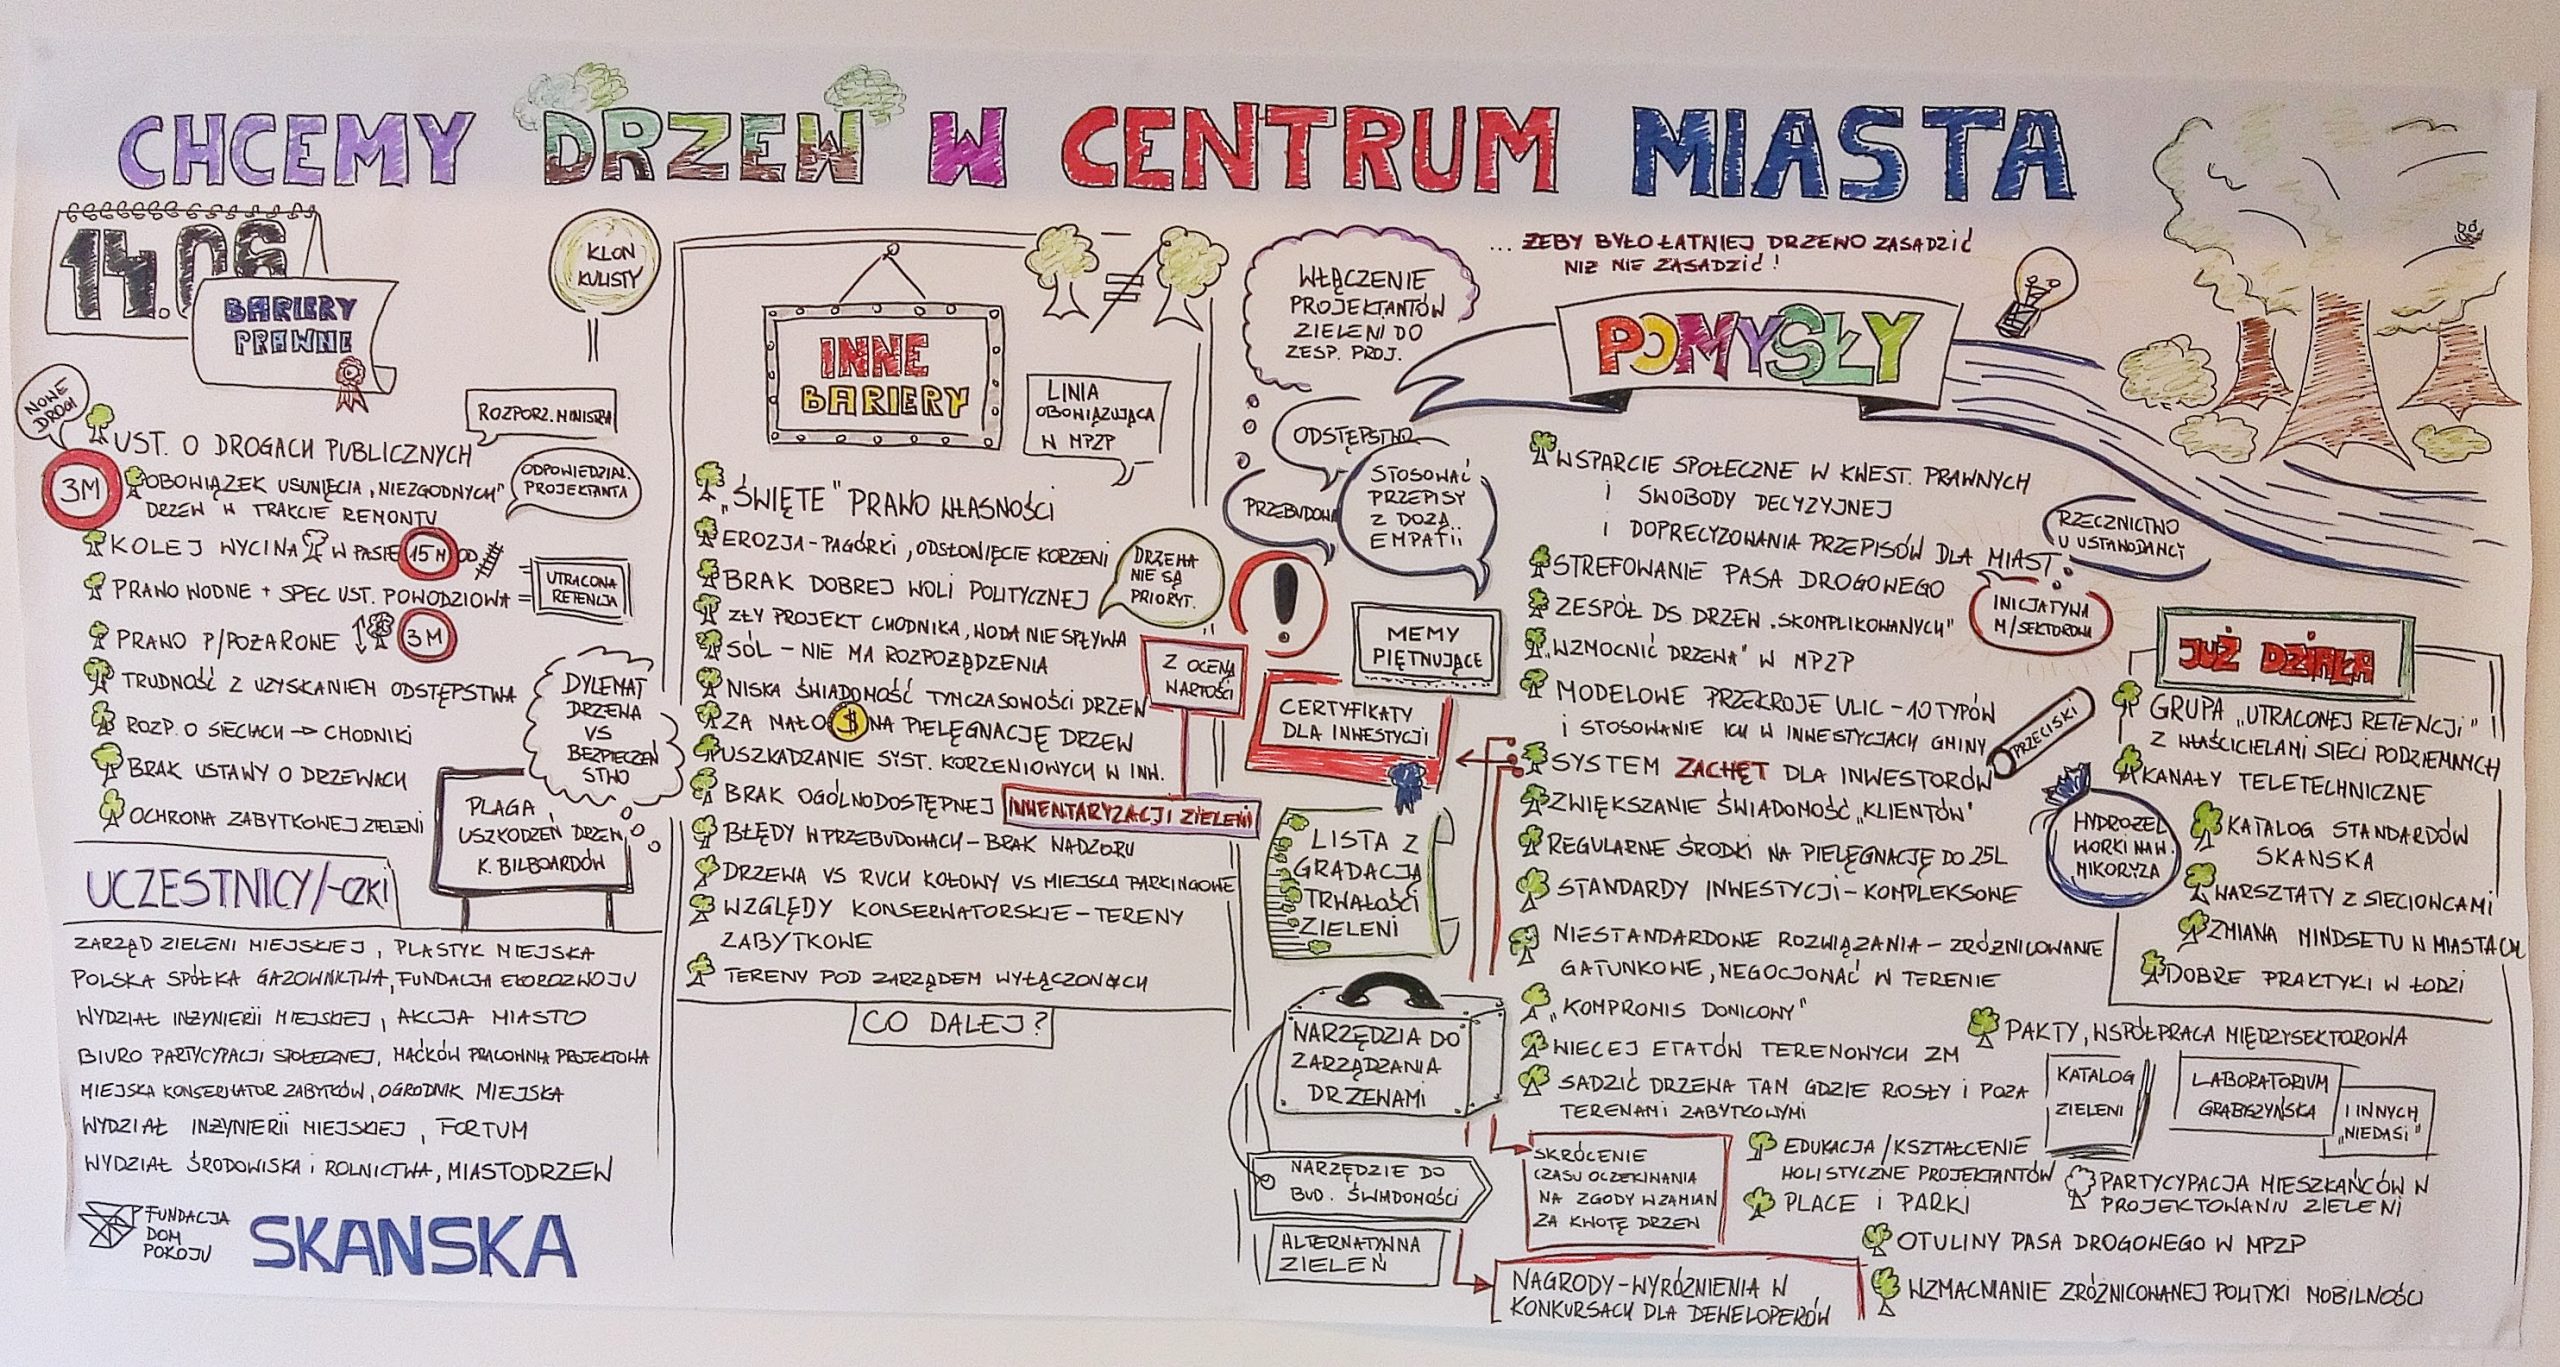 CHCEMY DRZEW W CENTRUM MIASTA
14.06
BARIERY
PRAWNE
KLON
KULISTY
NOWE
DROGI
ROZPORZ. MINISTRA
UST. O DROGACH PUBLICZNYCH
ODPOWIEDZIAL.
PROJEKTANTA
3M
OBOWIĄZEK USUNIĘCIA „NIEZGODNYCH"
DRZEW W TRAKCIE REMONTU
KOLEJ WYCINA W PASIE 15 M OD
PRAWO WODNE + SPEC UST. POWODZIOWA =
UTRACONA
RETENCJA
PRAWO P/POŻAROWE 3M
TRUDNOŚĆ Z UZYSKANIEM ODSTĘPSTWA
ROZP. O SIECIACH → CHODNIKI
BRAK USTAWY O DRZEWACH
OCHRONA ZABYTKOWEJ ZIELENI
DYLEMAT
DRZEWA
VS
BEZPIECZEŃ
STWO
PLAGA
USZKODZEŃ DRZEW
K. BILBOARDÓW
UCZESTNICY/-CZKI
ZARZĄD ZIELENI MIEJSKIEJ, PLASTYK MIEJSKA
POLSKA SPÓŁKA GAZOWNICTWA, FUNDACJA EKOROZWOJU
WYDZIAŁ INŻYNIERII MIEJSKIEJ, AKCJA MIASTO
BIURO PARTYCYPACJI SPOŁECZNEJ, MAĆKÓW PRACOWNIA PROJEKTOWA
MIEJSKA KONSERWATOR ZABYTKÓW, OGRODNIK MIEJSKA
WYDZIAŁ INŻYNIERII MIEJSKIEJ, FORTUM
WYDZIAŁ ŚRODOWISKA i ROLNICTWA, MIASTODRZEW
FUNDACJA
DOM
POKOJU
SKANSKA
INNE
BARIERY
≠
LINIA
OBOWIĄZUJĄCA
W MPZP
„ŚWIĘTE" PRAWO WŁASNOŚCI
EROZJA - PAGÓRKI, ODSŁONIĘCIE KORZENI
BRAK DOBREJ WOLI POLITYCZNEJ
DRZEWA
NIE SĄ
PRIORYT.
ZŁY PROJEKT CHODNIKA, WODA NIE SPŁYWA
SÓL - NIE MA ROZPOŻĄDZENIA
NISKA ŚWIADOMOŚĆ TYMCZASOWOŚCI DRZEW
ZA MAŁO $ NA PIELĘGNACJĘ DRZEW
USZKADZANIE SYST. KORZENIOWYCH W INW.
Z OCENĄ
WARTOŚCI
BRAK OGÓLNODOSTĘPNEJ INWENTARYZACJI ZIELENI
BŁĘDY W PRZEBUDOWACH - BRAK NADZORU
DRZEWA VS RUCH KOŁOWY VS MIEJSCA PARKINGOWE
WZGLĘDY KONSERWATORSKIE - TERENY
ZABYTKOWE
TERENY POD ZARZĄDEM WYŁĄCZONYCH
CO DALEJ?
WŁĄCZENIE
PROJEKTANTÓW
ZIELENI DO
ZESP. PROJ.
... ŻEBY BYŁO ŁATNIEJ DRZEWO ZASADZIĆ
NIŻ NIE ZASADZIĆ!
POMYSŁY
ODSTĘPSTWO
PRZEBUDOWA
STOSOWAĆ
PRZEPISY
Z DOZĄ..
EMPATII
!
MEMY
PIĘTNUJĄCE
CERTYFIKATY
DLA INWESTYCJI
LISTA Z
GRADACJĄ
TRWAŁOŚCI
ZIELENI
NARZĘDZIA DO
ZARZĄDZANIA
DRZEWAMI
NARZĘDZIE DO
BUD. ŚWIADOMOŚCI
ALTERNATYWNA
ZIELEŃ
WSPARCIE SPOŁECZNE W KWEST. PRAWNYCH
i SWOBODY DECYZYJNEJ
i DOPRECYZOWANIA PRZEPISÓW DLA MIAST
RZECZNICTWO
U USTAWODAWCI
STREFOWANIE PASA DROGOWEGO
INICJATYWA
M/SEKTOROWA
ZESPÓŁ DS DRZEW „SKOMPLIKOWANYCH"
„WZMOCNIĆ DRZEWA" W MPZP
MODELOWE PRZEKROJE ULIC - 10 TYPÓW
i STOSOWANIE ICH W INWESTYCJACH GMINY
PRZECISKI
SYSTEM ZACHĘT DLA INWESTORÓW
ZWIĘKSZANIE ŚWIADOMOŚĆ „KLIENTÓW"
HYDROŻEL
WORKI NAW.
MIKORYZA
REGULARNE ŚRODKI NA PIELĘGNACJĘ DO 25L
STANDARDY INWESTYCJI - KOMPLEKSOWE
NIESTANDARDOWE ROZWIĄZANIA - ZRÓŻNICOWANIE
GATUNKOWE, NEGOCJOWAĆ W TERENIE
„KOMPROMIS DONICOWY"
WIĘCEJ ETATÓW TERENOWYCH ZM
SADZIĆ DRZEWA TAM GDZIE ROSŁY i POZA
TERENAMI ZABYTKOWYMI
SKRÓCENIE
CZASU OCZEKIWANIA
NA ZGODY W ZAMIAN
ZA KWOTĘ DRZEW
NAGRODY - WYRÓŻNIENIA W
KONKURSACH DLA DEWELOPERÓW
EDUKACJA/KSZTAŁCENIE
HOLISTYCZNE PROJEKTANTÓW
PLACE i PARKI
JUŻ DZIAŁA
GRUPA „UTRACONEJ RETENCJI"
Z WŁAŚCICIELAMI SIECI PODZIEMNYCH
KANAŁY TELETECHNICZNE
KATALOG STANDARDÓW
SKANSKA
WARSZTATY Z SIECIOWCAMI
ZMIANA MINDSETU W MIASTACH
DOBRE PRAKTYKI W ŁODZI
PAKTY, WSPÓŁPRACA MIĘDZYSEKTOROWA
KATALOG
ZIELENI
LABORATORIUM
GRABISZYŃSKA
I INNYCH
„NIEDASI"
PARTYCYPACJA MIESZKAŃCÓW W
PROJEKTOWANIU ZIELENI
OTULINY PASA DROGOWEGO W MPZP
WZMACNIANIE ZRÓŻNICOWANEJ POLITYKI MOBILNOŚCI